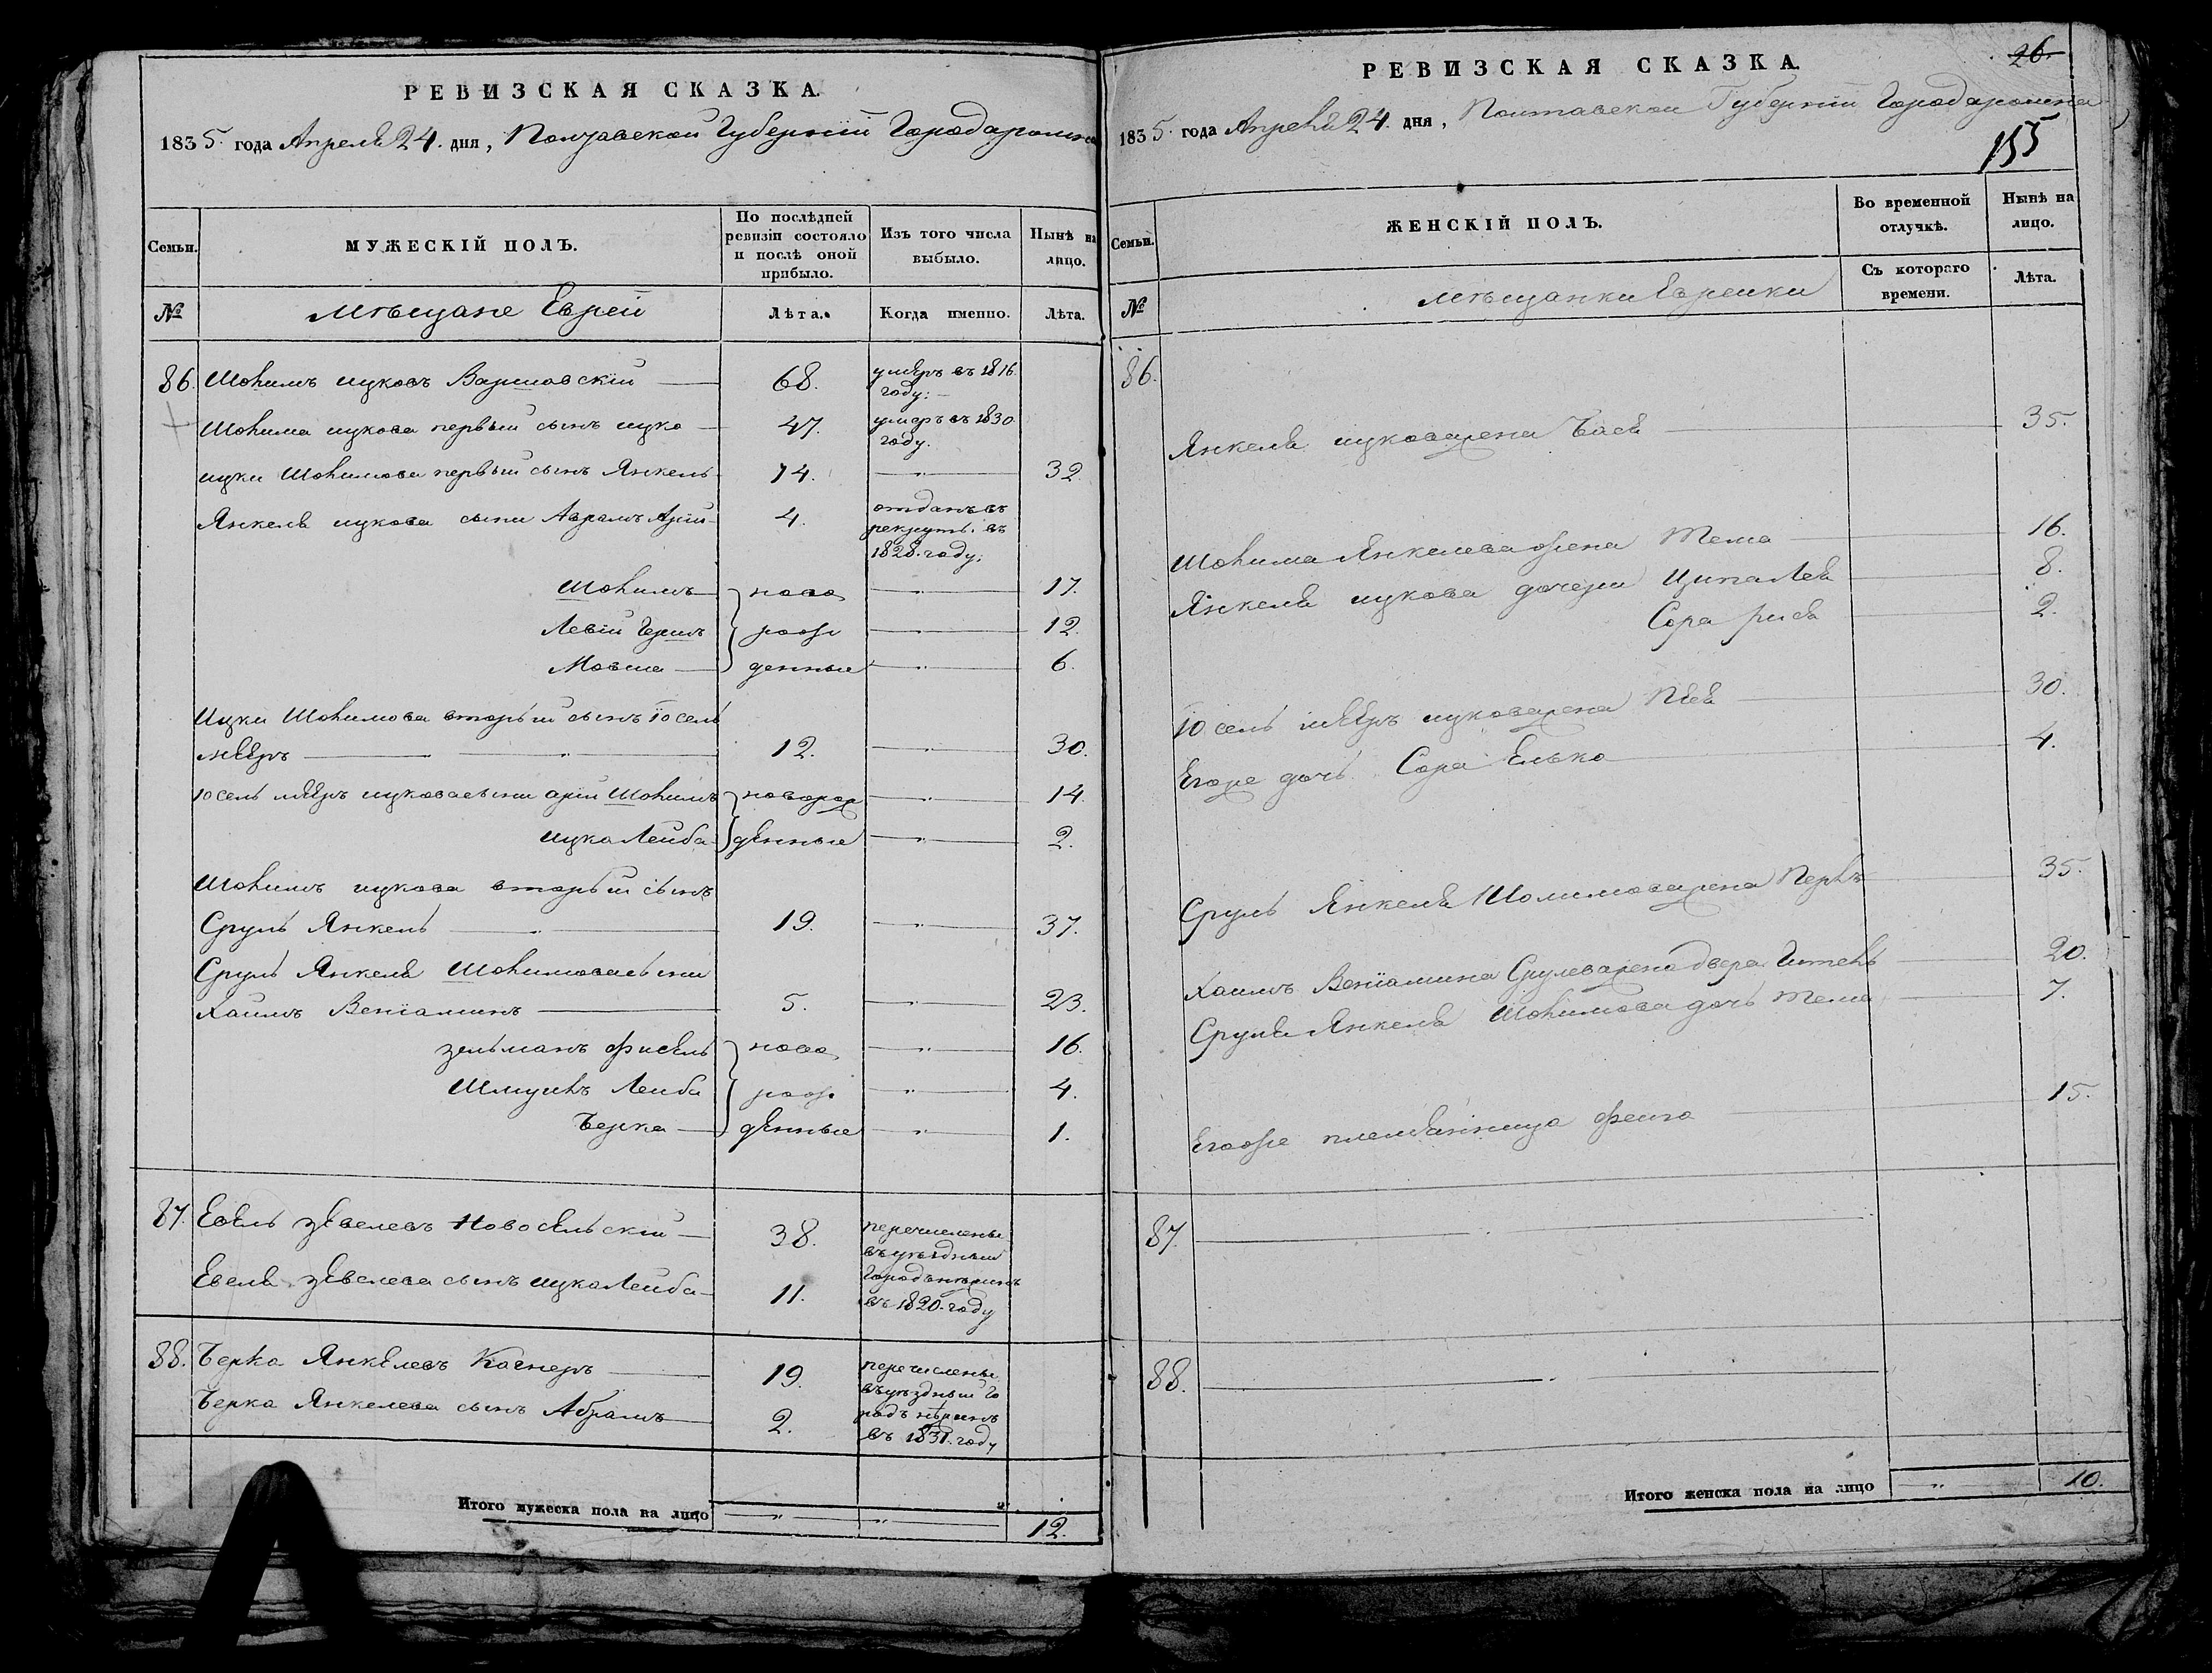 РЕВИЗСКАЯ СКАЗКА.
1835. года Апреля 24. дня, Полтавской Губернiи Города ромна
Семьи.
МУЖЕСКІЙ ПОЛЪ.
По послѣдней ревизіи состояло и послѣ оной прибыло.
Изъ того числа выбыло.
Нынѣ на лицо.
№
Мѣщане Еврей
Лѣта.
Когда именно.
Лѣта.
86. Шолимъ ицковъ Варшавскій 68. умеръ въ 1816 году.
Шолима ицкова первый сынъ ицко 47. умеръ въ 1830 году.
ицки Шолимова первый сынъ Янкель 14. 32
Янкеля ицкова сыни Аврамъ Арій 4. отданъ въ рекрути. въ 1828. году.
Шолимъ ново 17.
Левій Гершъ рож 12.
Мовша денные 6.
Ицки Шолимова вторый сынъ Іосель
меѣръ 12. 30.
Іосель меѣръ ицкова сыни арій Шолимъ новорож 14
ицко Лейба денные 2.
Шолимъ ицкова вторый сынъ
Сруль Янкель 19. 37.
Сруль Янкеля Шолимова сыни
Хаимъ Веніаминъ 5. 23.
зельманъ фисель ново 16.
Шмуилъ Лейба рож 4.
Берка денные 1.
87. Евель зѣвелевъ Новосельскій 38. перечислены въ уѣздный
Евеля зѣвелева сынъ ицко Лейба 11. Городъ въ 1820. году
88. Берка Янкелевъ 19. перечислены въ уѣздный го
Берка Янкелева сынъ Абрамъ 2. родъ въ 1831. году
Итого мужеска пола на лицо 12.
26.
РЕВИЗСКАЯ СКАЗКА.
1835. года Апреля 24. дня, Полтавской Губернiи Города ромна
155
Семьи.
ЖЕНСКІЙ ПОЛЪ.
Во временной отлучкѣ.
Нынѣ на лицо.
№
Мѣщанки Еврейки
Съ котораго времени.
Лѣта.
86.
Янкеля ицкова жена Бася 35.
Шолима Янкелева жена Тема 16.
Янкеля ицкова дочери Ципа Лея 8.
Сора 2.
Іосель меѣръ ицкова жена 30.
Егоже дочь Сора Елько 4.
Сруль Янкеля Шолимова жена Перлъ 35.
Хаимъ Веніамина Срулева жена двера Гитель 20.
Сруля Янкеля Шолимова дочь Тема 7.
Егоже племѣнница фейга 15.
87.
88.
Итого женска пола на лицо 10.